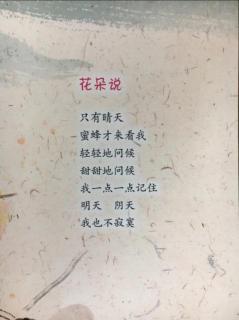 花朵说
只有晴天
蜜蜂才来看我
轻轻地问候
甜甜地问候
我一点一点记住
明天　阴天
我也不寂寞